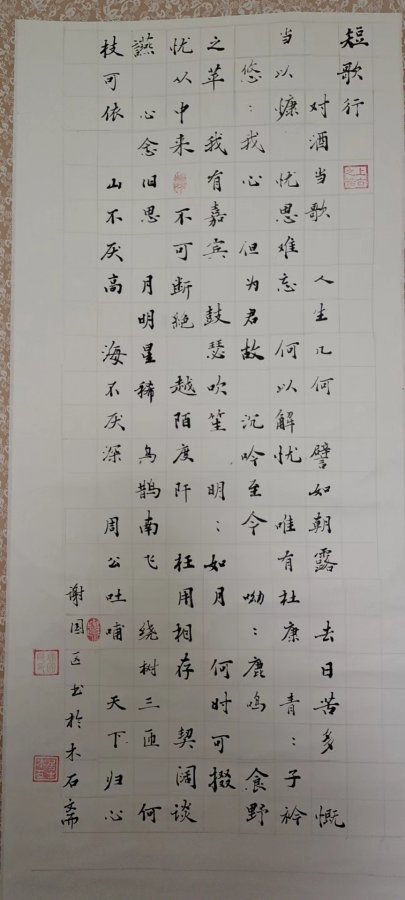 短歌行
对酒当歌 人生几何 譬如朝露 去日苦多 慨
当以慷 忧思难忘 何以解忧 唯有杜康 青:子衿
悠:我心 但为君故 沉吟至今 呦:鹿鸣 食野
之苹 我有嘉宾 鼓瑟吹笙 明:如月 何时可掇
忧从中来 不可断绝 越陌度阡 枉用相存 契阔谈
讌 心念旧恩 月明星稀 乌鹊南飞 绕树三匝 何
枝可依 山不厌高 海不厌深 周公吐哺 天下归心
谢国 书於木石斋